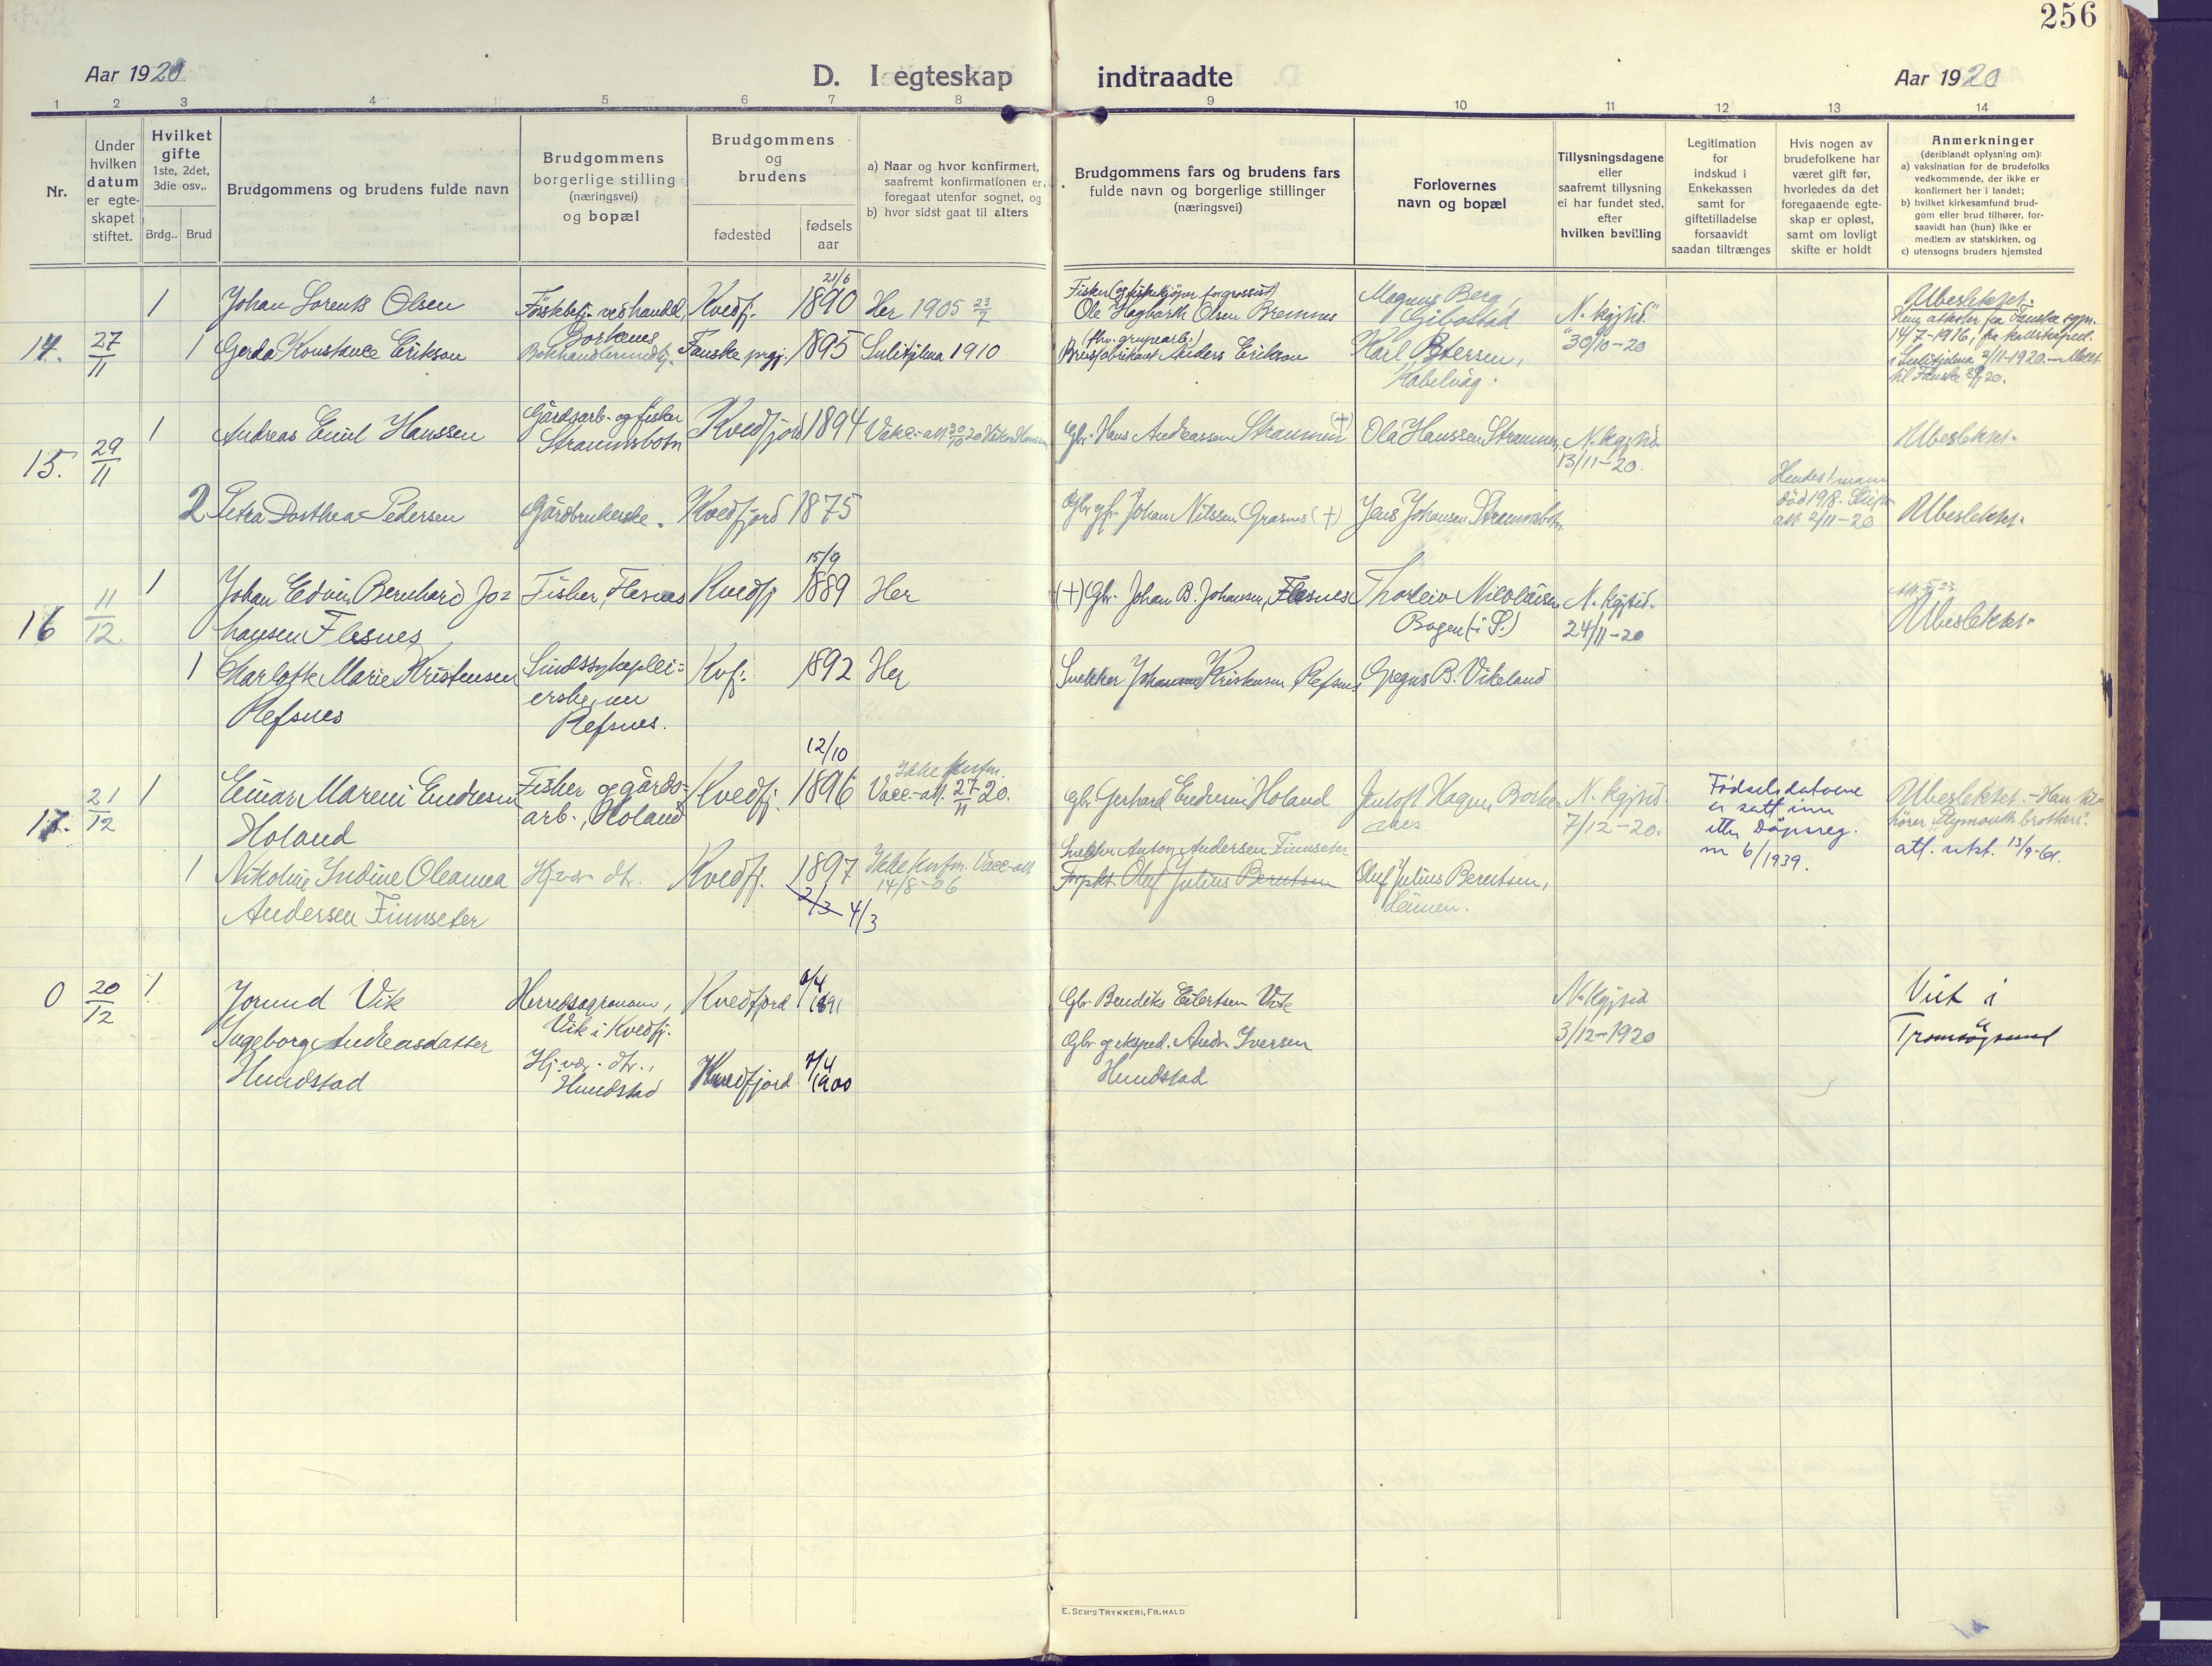 256
Aar 1920
D. I egteskap indtraadte
Aar 1920
1 2 3 4 5 6 7 8 9 10 11 12 13 14
Nr.
Under
hvilken
datum
er egte-
skapet
stiftet.
Hvilket
gifte
1ste, 2det,
3die osv,.
Brdg.. Brud
Brudgommens og brudens fulde navn
Brudgommens
borgerlige stilling
(næringsvei)
og bopæl
Brudgommens
og
brudens
fødested
fødsels
aar
a) Naar og hvor konfirmert,
saafremt konfirmationen er
foregaat utenfor sognet, og
b) hvor sidst gaat til alters
Brudgommens fars og brudens fars
fulde navn og borgerlige stillinger
(næringsvei)
Forlovernes
navn og bopæl
Tillysningsdagene
eller
saafremt tillysning
ei har fundet sted,
efter
hvilken bevilling
Legitimation
for
indskud i
Enkekassen
samt for
giftetilladelse
forsaavidt
saadan tiltrænges
Hvis nogen av
brudefolkene har
været gift før,
hvorledes da det
foregaaende egte-
skap er opløst,
samt om lovligt
skifte er holdt
Anmerkninger
(deriblandt oplysning om):
a) vaksination for de brudefolks
vedkommende, der ikke er
konfirmert her i landet;
b) hvilket kirkesamfund brud-
gom eller brud tilhører, for-
saavidt han (hun) ikke er
medlem av statskirken, og
c) utensogns bruders hjemsted
14. 27/11
1 Johan Lorents Olsen
Kvedfj. 21/6 1890 Her 1905
Borkenes
Ole Hagbarth Olsen Bremnes
Magnus Berg,
Gibostad
N. kgjsid.
30/10-20
Ubeslektet.
1 Gerda Konstance Erikson
Fauske prgj. 1895 Sulitjelma 1910
Anders Erikson
Karl Petersen,
Kabelvåg.
14/7-1916,
15. 29/11
1 Andreas Emil Hanssen
Gårdsarb. og fisker
Straumsbotn
Kvedfjord 1894
Gbr. Hans Andreassen Straumen (+)
Ola Hanssen Straumen
N. kgjsid.
13/11-20.
Ubeslektet.
2 Petra Dorthea Pedersen
Gårdbrukerske.
Kvedfjord 1875
Johan Nilssen Grasnes (+)
Jens Johansen Straumsbotn
Hendes 1. mann
att. 2/11-20
Ubeslektet.
16 11/12
1 Johan Edvin Bernhard Jo=
hansen Flesnes
Fisker, Flesnes
Kvedfj 15/9 1889 Her
(+) Gbr. Johan B. Johansen, Flesnes
Thorleiv Nikolaisen
Bogen (i S.)
N. kgjsid.
24/11-20
Ubeslektet.
1 Charlotte Marie Kristensen
Refsnes
Sindssykeplei=
erske, nu
Refsnes.
Kvfj. 1892 Her
Snekker Johannes Kristensen Refsnes
Gregus B. Vikeland
17. 21/12
1 Einar Mareni Endresen
Holand
Fisker og gårds=
arb., Holand
Kvedfj. 12/10 1896
Ikke konfm.
Vacc.-att. 27/11 20.
Gbr. Gerhard Endresen Holand
Jentoft Hagen Borke
nes.
N. kgjsid.
7/12-20.
Fødselsdatoene
er satt inn
etter Dåpsreg.
nr 6/1939.
Ubeslektet. - Han til=
hører "Plymouth brothers".
att. utst. 13/9-61.
1 Nikoline Indine Oleanna
Andersen Finnseter
Hj.vær. dtr.
Kvedfj. 1897
2/3 4/3
Ikke konfm. Vacc-att
14/8-06
Snekker Anton Andersen Finnseter
Forpkt. Oluf Julius Berntsen
Oluf Julius Berntsen,
0 20/12
1 Jorund Vik
Herredsagronom,
Vik i Kvedfj.
Kvedfjord 6/4 1891
Gbr. Bendiks Eilertsen Vik
N. kgjsid
3/12-1920
Viet i
Tromsøysund
Ingeborg Andreasdatter
Hundstad
Hj.vær. dtr.,
Hundstad
Kvedfjord 7/4 1900
Gbr. og eksped. Andr. Iversen
Hundstad
E. SEM'S TRYKKERI, FR. HALD